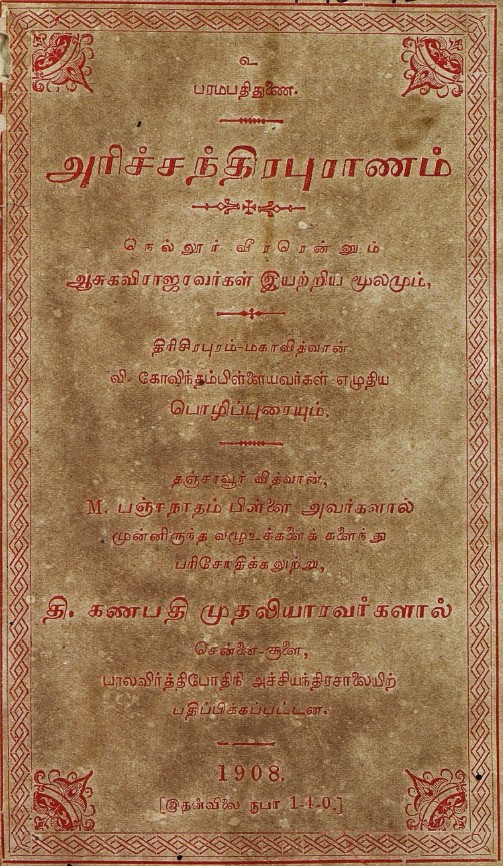 உ
பரமபதிதுணை.
அரிச்சந்திரபுராணம்
நெல்லூர் வீரரென்னும்
ஆசுகவிராஜரவர்கள் இயற்றிய மூலமும்,
திரிசிரபுரம்-மகாவித்வான்
வி. கோவிந்தம்பிள்ளையவர்கள் எழுதிய
பொழிப்புரையும்.
தஞ்சாவூர் வித்வான்,
M. பஞ்சநாதம் பிள்ளை அவர்களால்
முன்னிருந்த வழூஉக்களைக் களைந்து
பரிசோதிக்கலுற்று,
தி. கணபதி முதலியாரவர்களால்
சென்னை-சூளை,
பாலவிர்த்திபோதிநி அச்சியந்திரசாலையிற்
பதிப்பிக்கப்பட்டன.
1908.
[இதன்விலை ரூபா 1-4-0.]